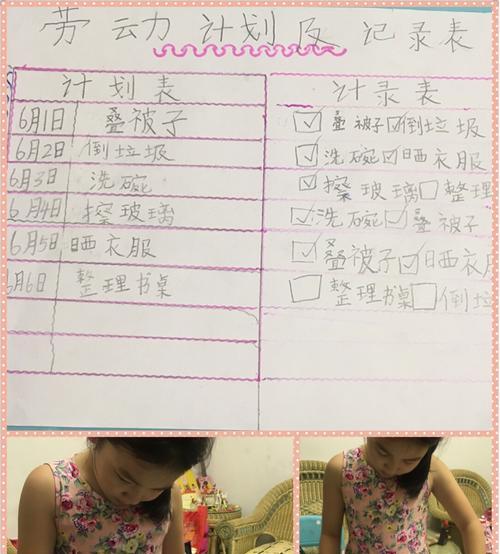 劳动力计划及记录表
计划表
6月1日 叠被子
6月2日 倒垃圾
6月3日 洗碗
6月4日 擦玻璃
6月5日 晒衣服
月6日 整理书桌
计录表
☑叠被子☑倒垃圾
☑洗碗☑晒衣服
☑擦玻璃☐整理
☑洗碗☑叠被子
☑叠被子☑晒衣服
☐整理书桌☐倒垃